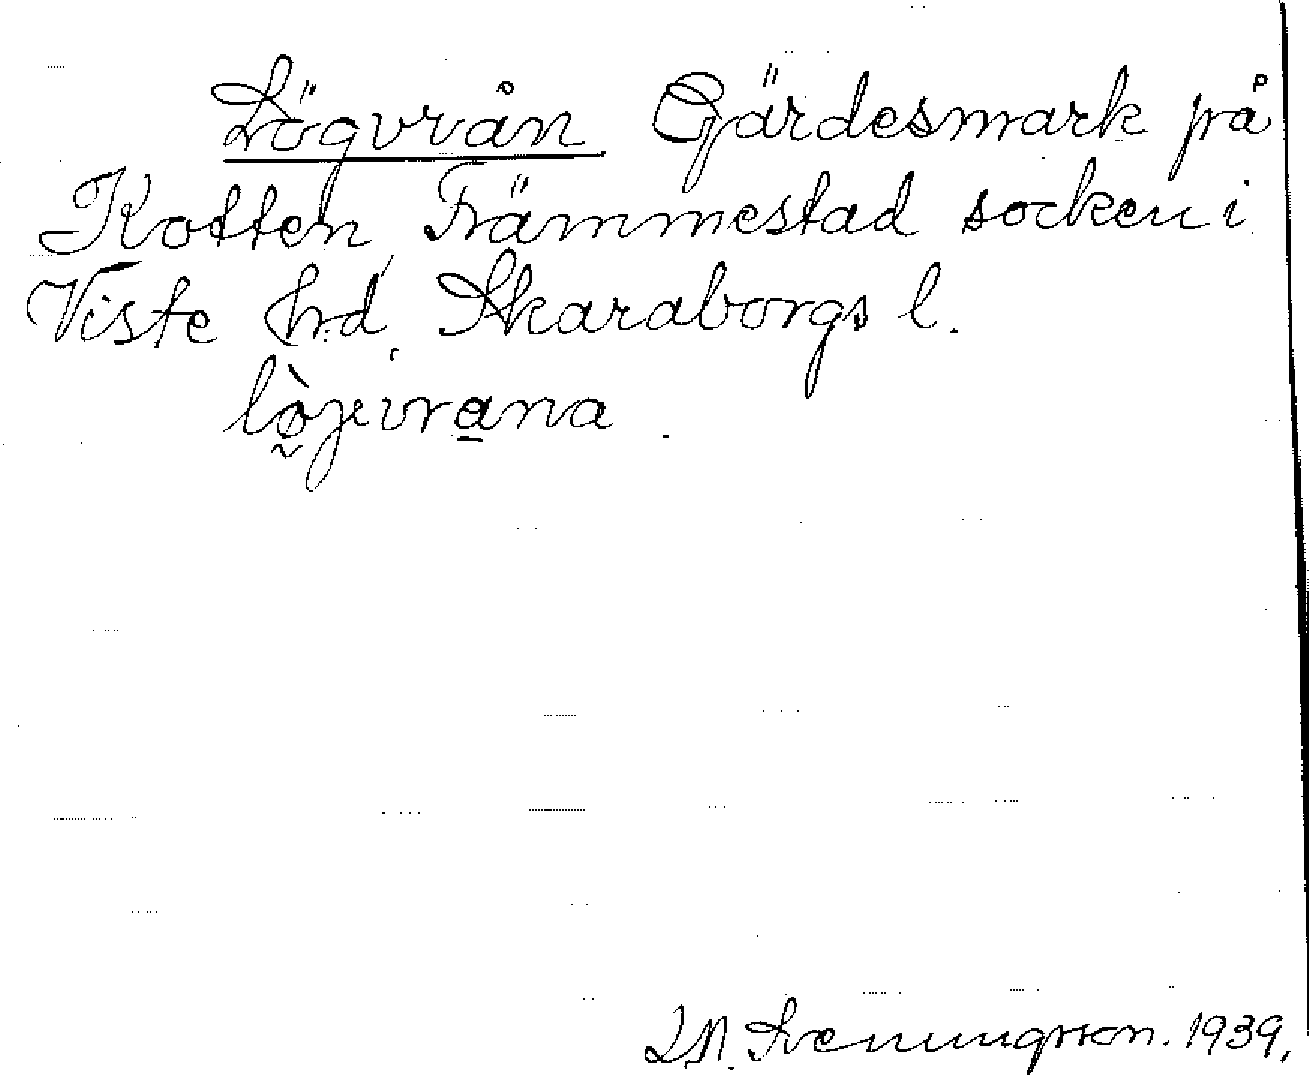 Lögvrån Gärdesmark på
Kotten, Främmestad socken i
Viste hrd, Skaraborgs l.
lòjvrana.
Svenungsson. 1939.